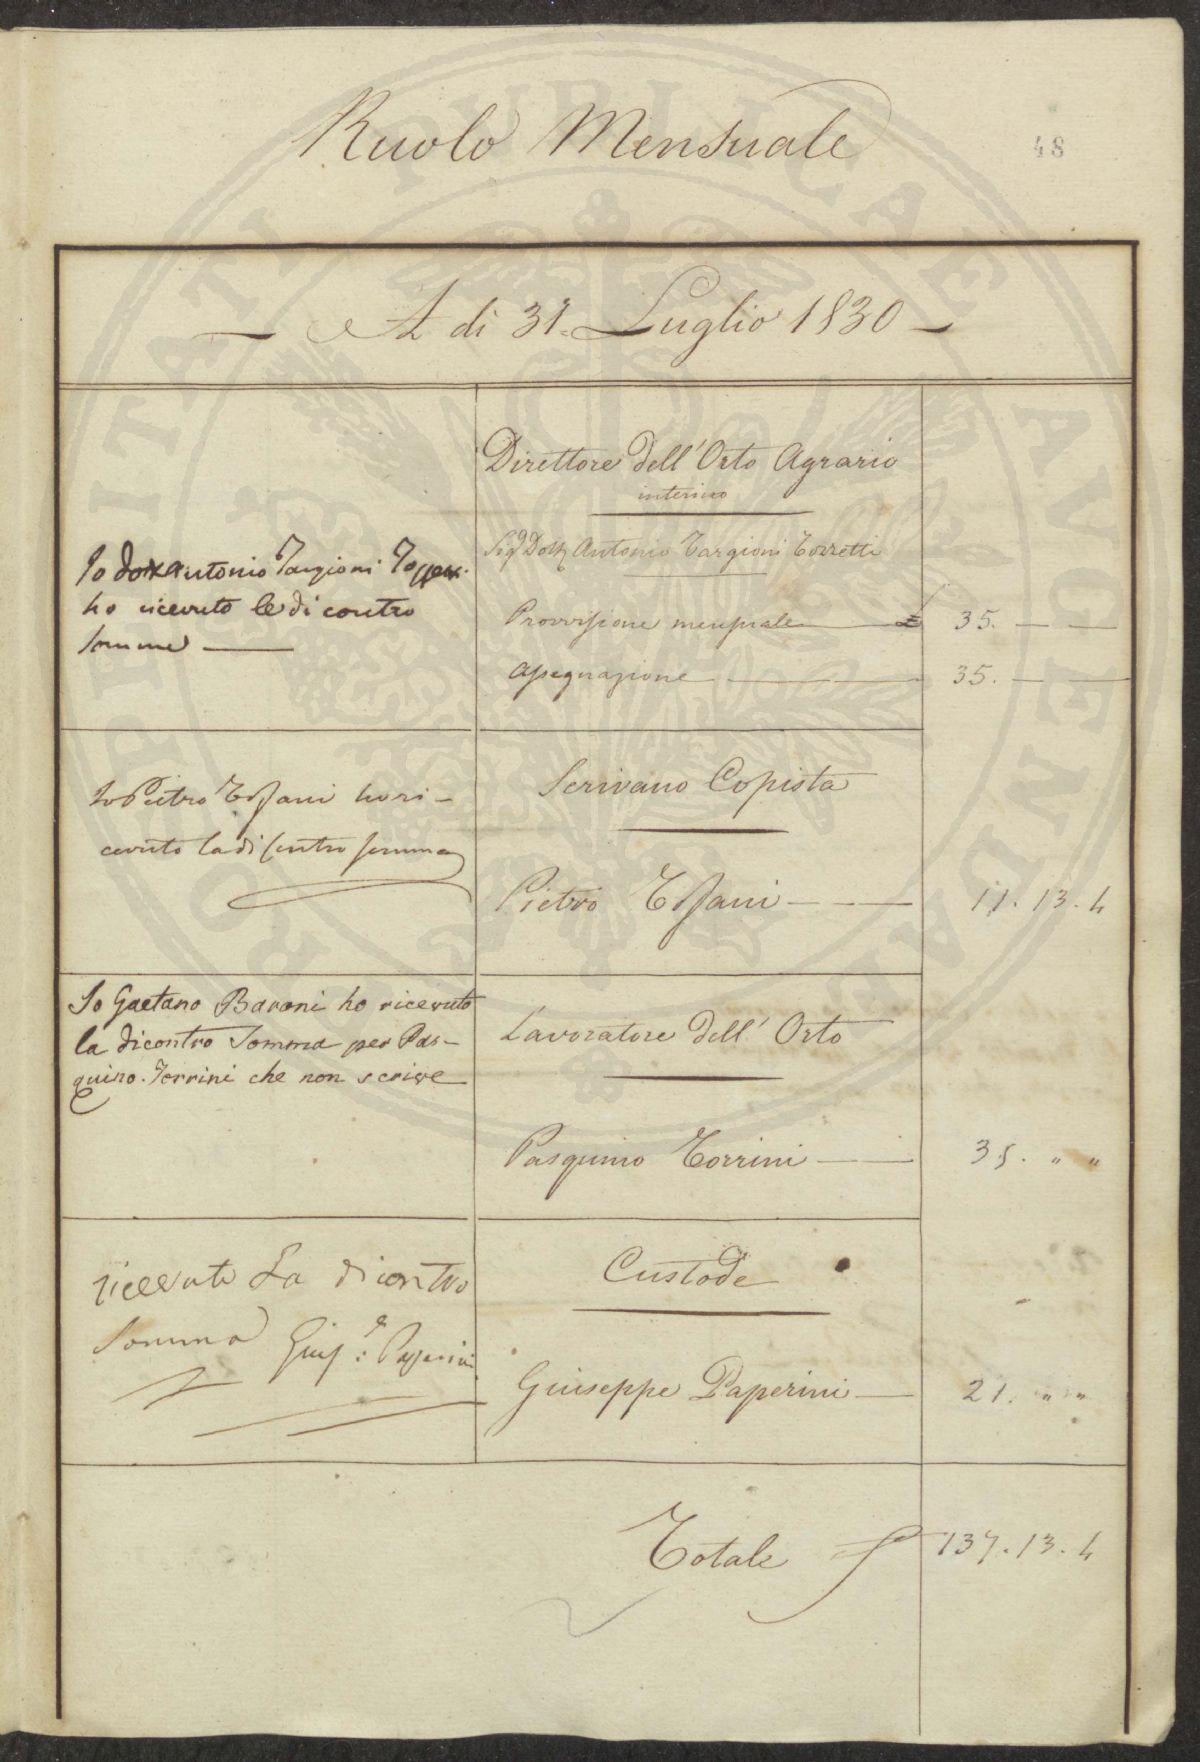 Ruolo Mensuale
48
A di 31. Luglio 1830
Direttore dell'Orto Agrario
interino
Io Dott Antonio Targioni Tozzetti
ho ricevuto le di contro
somme
Sig Dott Antonio Targioni Tozzetti
Provvisione mensuale £ 35. — —
Assegnazione 35. — —
Scrivano Copista
Io Pietro Tofani ho ri-
cevuto la di contro somma
Pietro Tofani 11. 13. 4
Io Gaetano Baroni ho ricevuto
la dicontro Somma per Pas-
quino. Torrini che non scrive
Lavoratore dell' Orto
Pasquino Torrini 35. " "
Custode
ricevuto La dicontro
Somma Giuse: Paperini
Giuseppe Paperini 21. " "
Totale £ 137. 13. 4